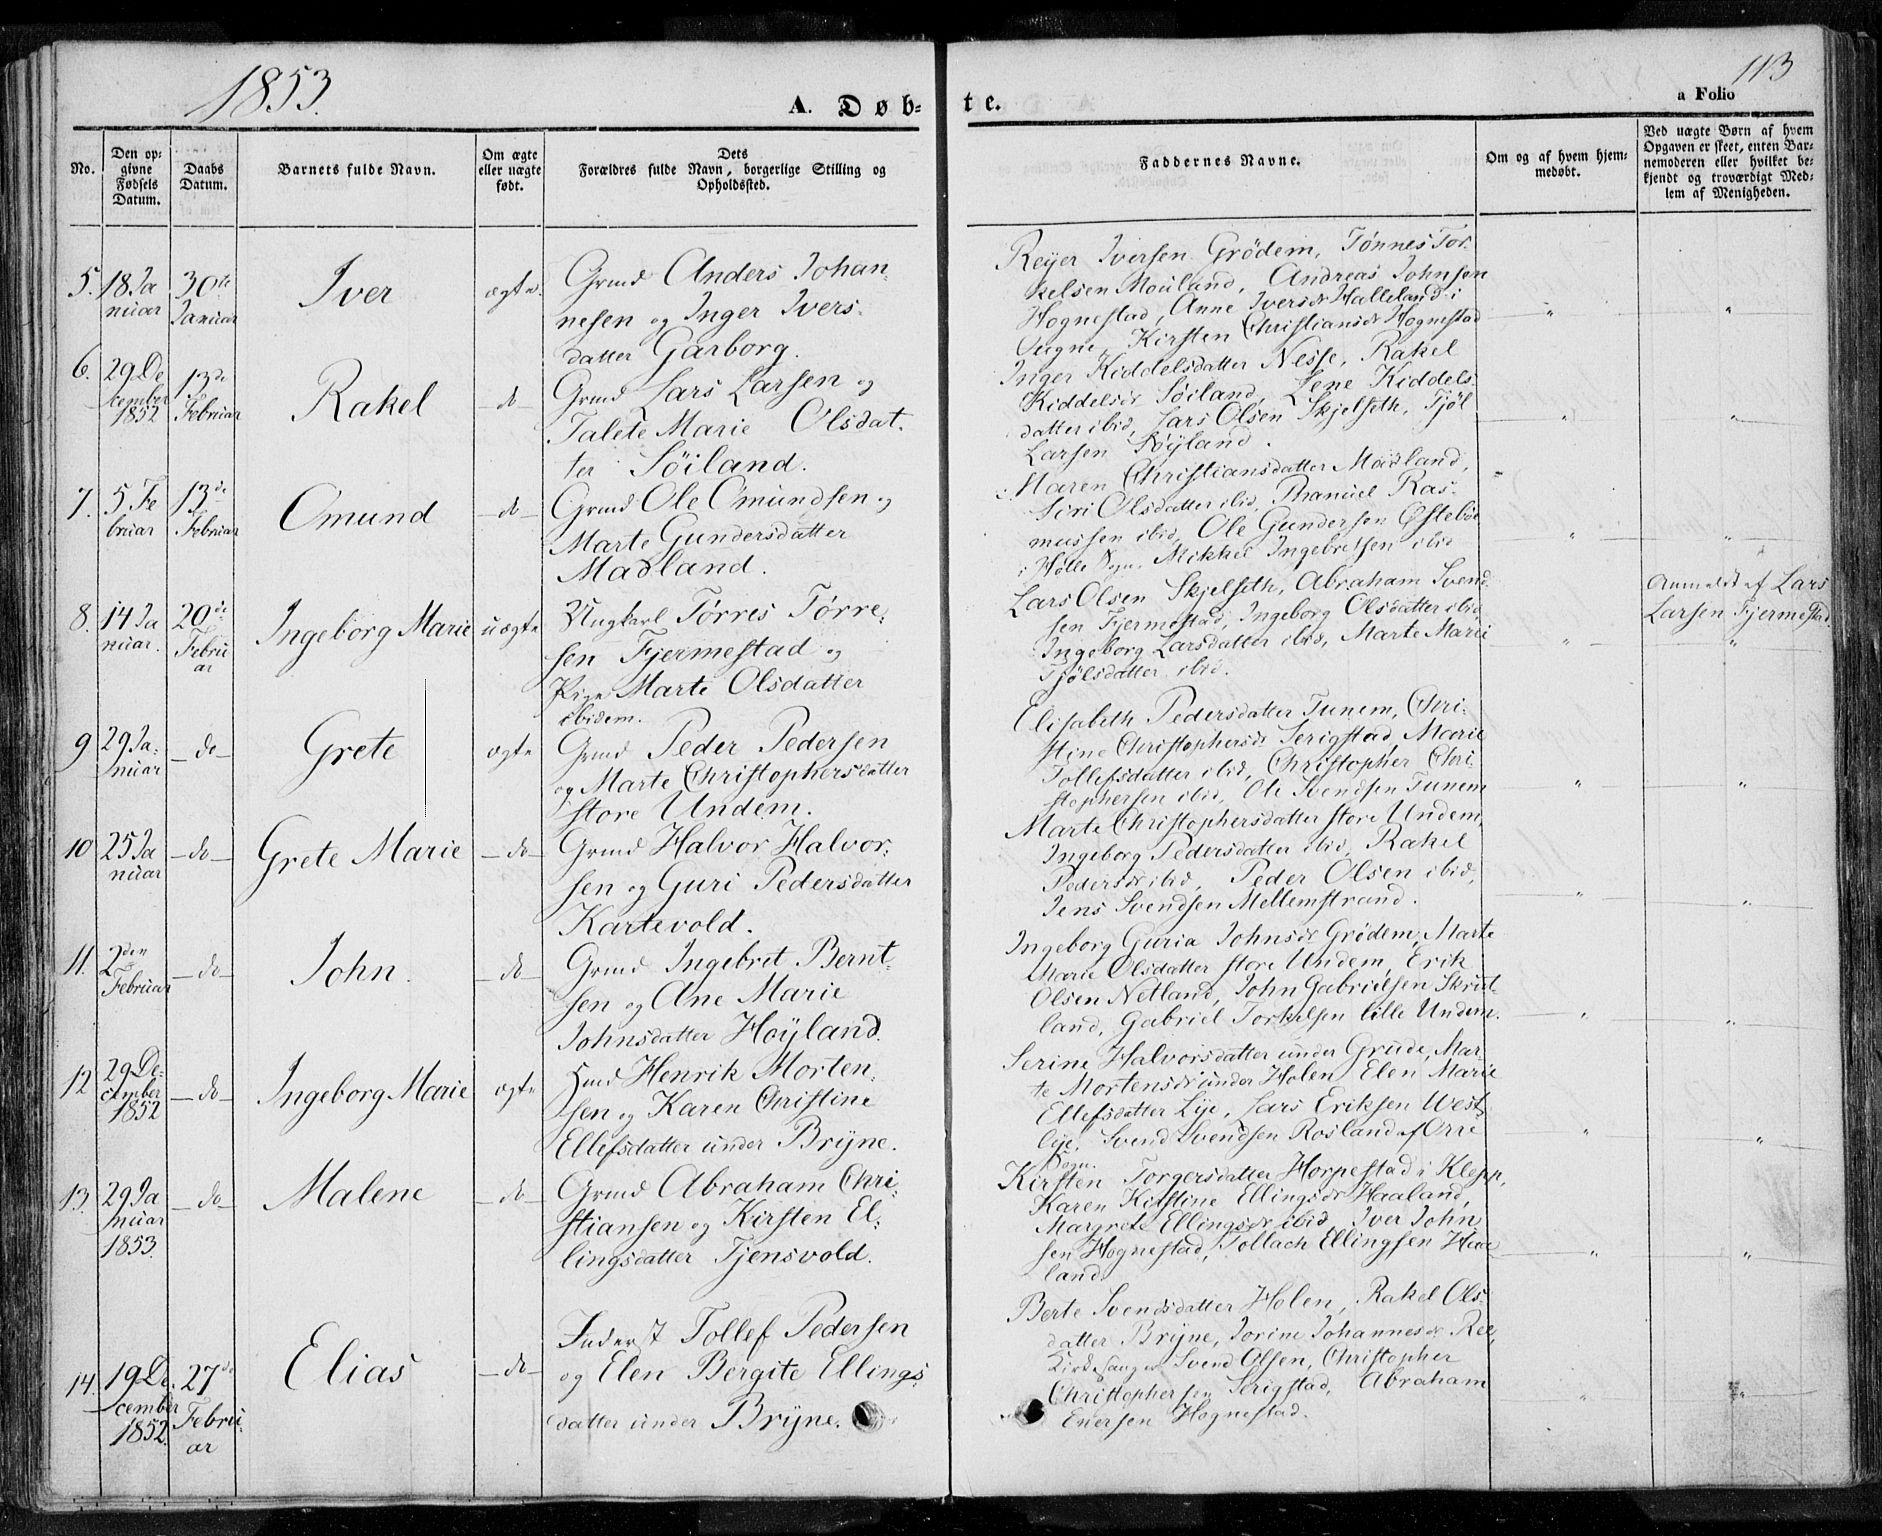 1853.
A. Døb-
te.
113
a Folio
No.
Den op-
givne
Fødsels
Datum.
Daabs
Datum.
Barnets fulde Navn.
Om ægte
eller uægte
født.
Dets
Forældres fulde Navn, borgerlige Stilling og
Opholdsted.
Faddernes Navne.
Om og af hvem hjem-
medøbt.
Ved uægte Børn af hvem
Opgaven er skeet, enten Bar-
nemoderen eller hvilket be-
kjendt og troværdigt Med-
lem af Menigheden.
5. 18 Ja
nuar
30te
Januar
Iver
ægte.
Grmd Anders Johan-
nesen og Inger Ivers-
datter Garborg.
Reyer Iversen Grödem, Tønnes Tor-
kelsen Mouland, Andreas Johnsen
Hognestad, Anne Iversdr Halleland i
Ougne, Kirsten Christiansdr Hognestad
6. 29 De
cember
1852
13de
Februar
Rakel
do
Grmd Lars Larsen og
Talete Marie Olsdat-
ter Söiland.
Inger Kiddelsdatter Nesse, Rakel
Kiddelsdr Söiland, Lene Kiddels-
datter ibid, Lars Olsen Skjelseth, Tjøl
Larsen Söyland.
7. 5 Fe
bruar
13de
Februar
Omund
do
Grmd Ole Omundsen og
Marte Gundersdatter
Madland.
Maren Christiansdatter Madland,
Siri Olsdatter ibid, Thanuel Ras-
mussen ibid, Ole Gundersen Østebøe
i Hølle Sogn, Mikkel Ingebretsen ibid
8. 14 Ja
nuar.
20de
Febru
ar
Ingeborg Marie
uægte
Ungkarl Törres Törre-
sen Fjermestad og
Pige Marte Olsdatter
ibidem.
Lars Olsen Skjelseth, Abraham Svend-
sen Fjermestad, Ingeborg Olsdatter ibid,
Ingeborg Larsdatter ibid, Marte Marie
Tjölsdatter ibid.
Anmeldt af Lars
Larsen Fjermestad.
9 29 Ja-
nuar
do
Grete
ægte
Grmd Peder Pedersen
og Marte Christophersdatter
store Undem.
Elisabeth Pedersdatter Tunem, Chri-
stine Christophersdr Serigstad, Marie
Tollefsdatter ibid, Christopher Chri-
stophersen ibid, Ole Svendsen Tunem
10 25 Ja
nuar
do
Grete Marie
do
Grmd Halvor Halvor-
sen og Guri Pedersdatter
Kartevold.
Marte Christophersdatter store Undem,
Ingeborg Pedersdatter ibid, Rakel
Pedersdr ibid, Peder Olsen ibid,
Jens Svendsen Mellemstrand.
11. 2den
Februar
do
John.
do
Grmd Ingebret Bernt-
sen og Ane Marie
Johnsdatter Høyland.
Ingeborg Guria Johnsdr Grödem, Marte
Marie Olsdatter store Undem, Erik
Olsen Netland, John Gabrielsen Skret-
land, Gabriel Torkelsen lille Undem.
12 29 De-
cember
1852
do
Ingeborg Marie
ægte
Hmd Henrik Morten-
sen og Karen Christine
Ellefsdatter under Bryne.
Serine Halvorsdatter under Grude, Mar-
te Mortensdr under Holen, Elen Marie
Ellefsdatter Lye, Lars Eriksen West-
lye, Svend Svendsen Rosland af Orre
Sogn.
13. 29 Ja
nuar
1853.
do
Malene
do
Grmd Abraham Chri-
stiansen og Kirsten El-
lingsdatter Tjensvold.
Kirsten Torgersdatter Horpestad i Klepp,
Karen Kirstine Ellingsdr Haaland,
Margrete Ellingsdr ibid, Iver John-
sen Hognestad, Tollach Ellingsen Haa-
land.
14. 19 De-
cember
1852.
27de
Febru-
ar
Elias
do
Inderst Tollef Pedersen
og Elen Bergite Ellings-
datter under Bryne.
Berte Svendsdatter Holen, Rakel Ols-
datter Bryne, Jorine Johannesdr Ree,
Kirkesanger Svend Olsen, Christopher
Christophersen Serigstad, Abraham
Enersen Hognestad.